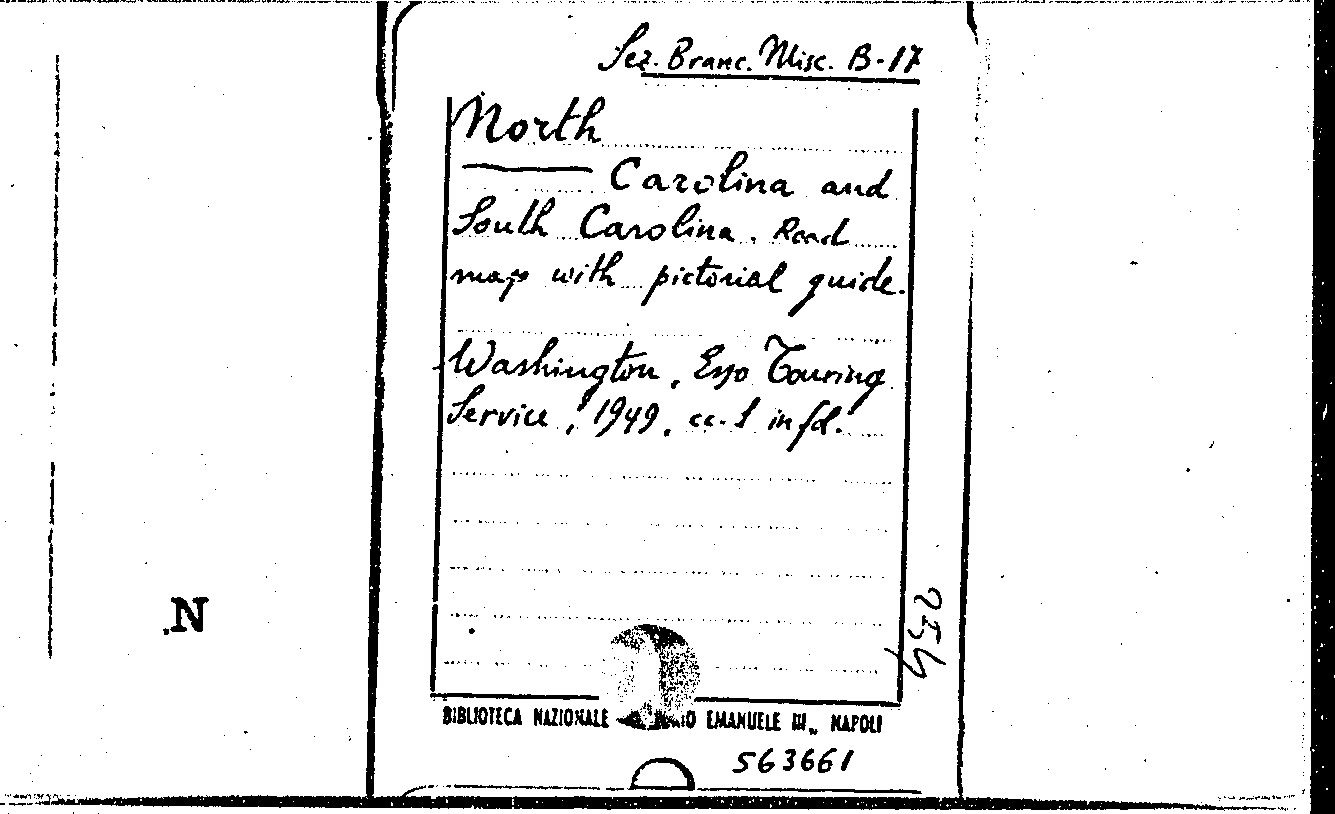 Sez. Branc. Misc. B-17
North
Carolina and
South Carolina. Road
map with pictorial guide.
Washington, Esso Touring
Service, 1949, cc. 1 in fol.
254
N
BIBLIOTECA NAZIONALE EMANUELE III„ NAPOLI
563661